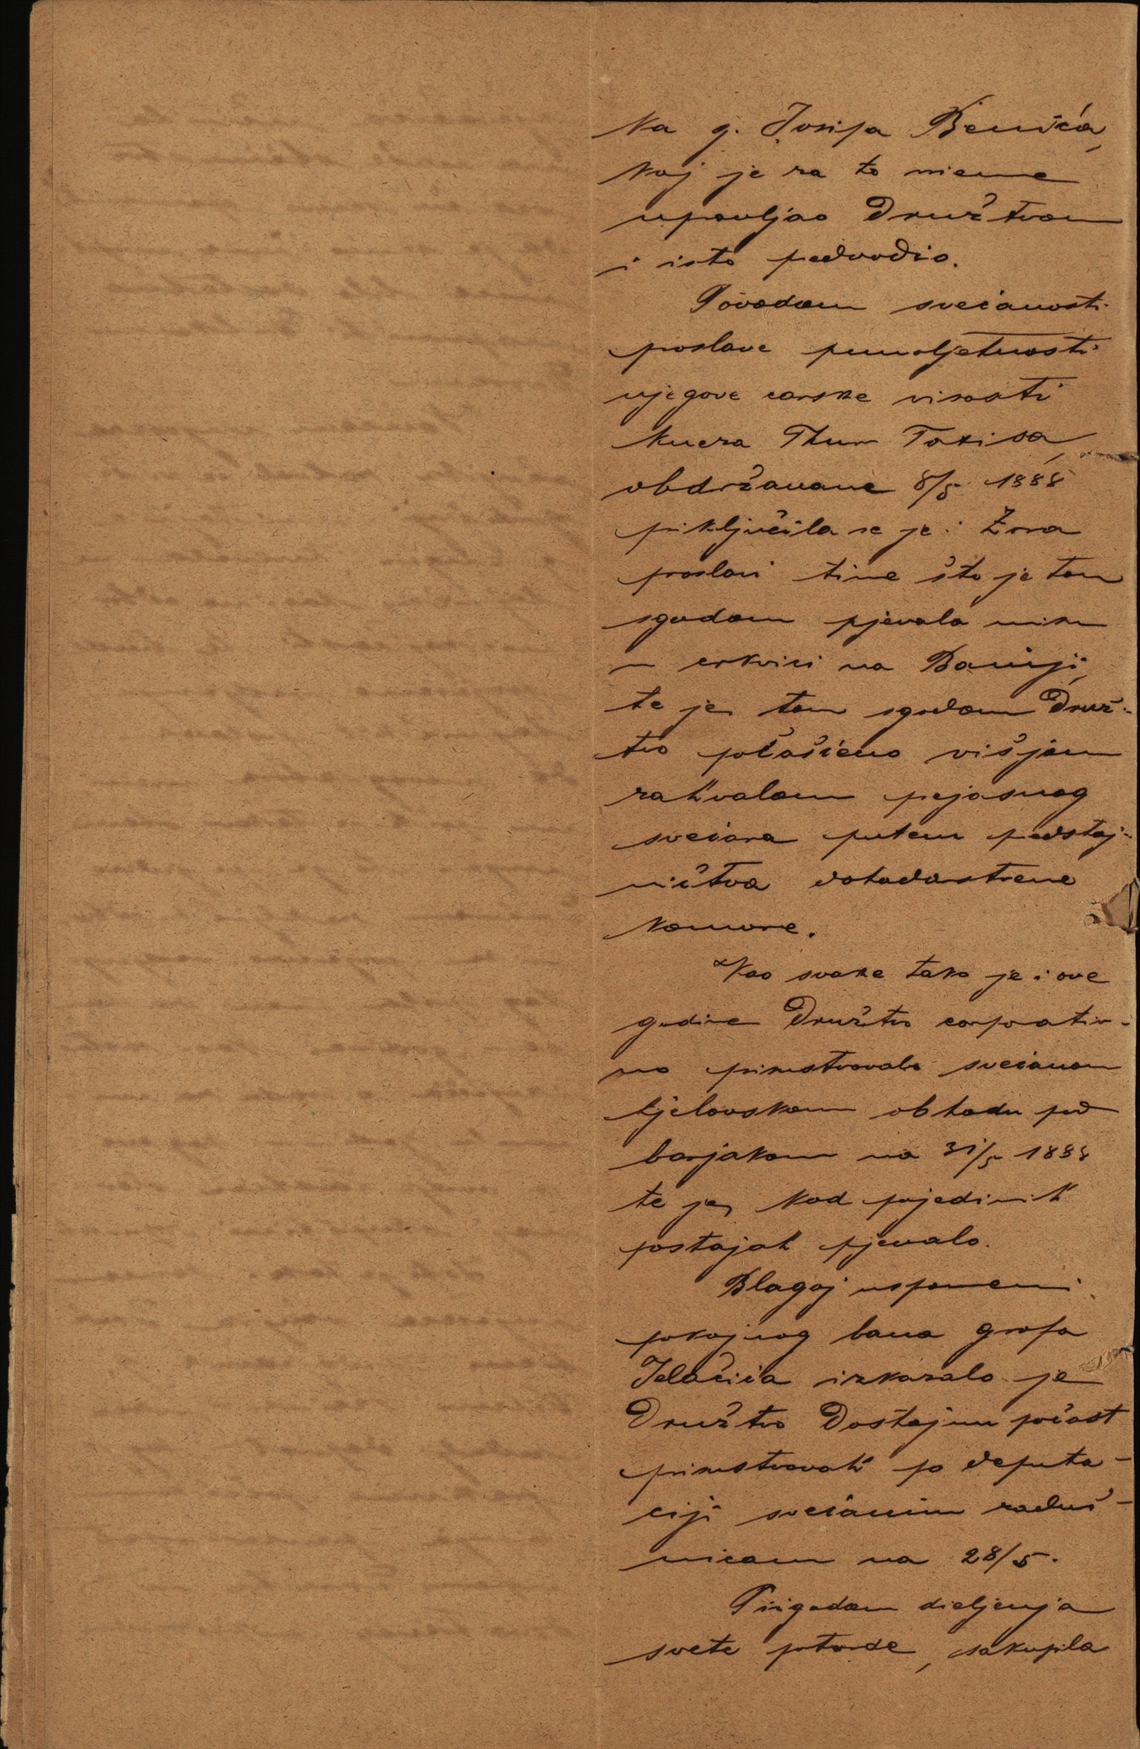 ka g. Josipa Benića,
koj je za to vrieme
upravljao Družtvom
i isto predvodio.
Povodom svečanosti
proslave punoljetnosti
njegove carske visosti
kneza Thurn Taxisa,
obdržavane 8/5 1888
priključila se je i Zora
proslavi time što je tom
sgodom pjevala misu
u crkvici na Baniji,
te je tom sgodom Druž-
tvo počašćeno višjom
zahvalom prejasnog
svečara putem predstoj-
ničtva dohodarstvene
komore.
Kao svake tako je i ove
godine Družtvo corporativ-
no prisustvovalo svečanom
tjelovskom obhodu pod
barjakom na 31/5 1888
te je kod pojedinih
postajah pjevalo.
Blagoj uspomeni
pokojnog bana grofa
Jelačića izkazalo je
Družtvo dostojnu počast
prisustvovati po deputa-
ciji svečanim zaduš-
nicam na 28/5.
Prigodom dieljenja
svete potvrde, sakupila